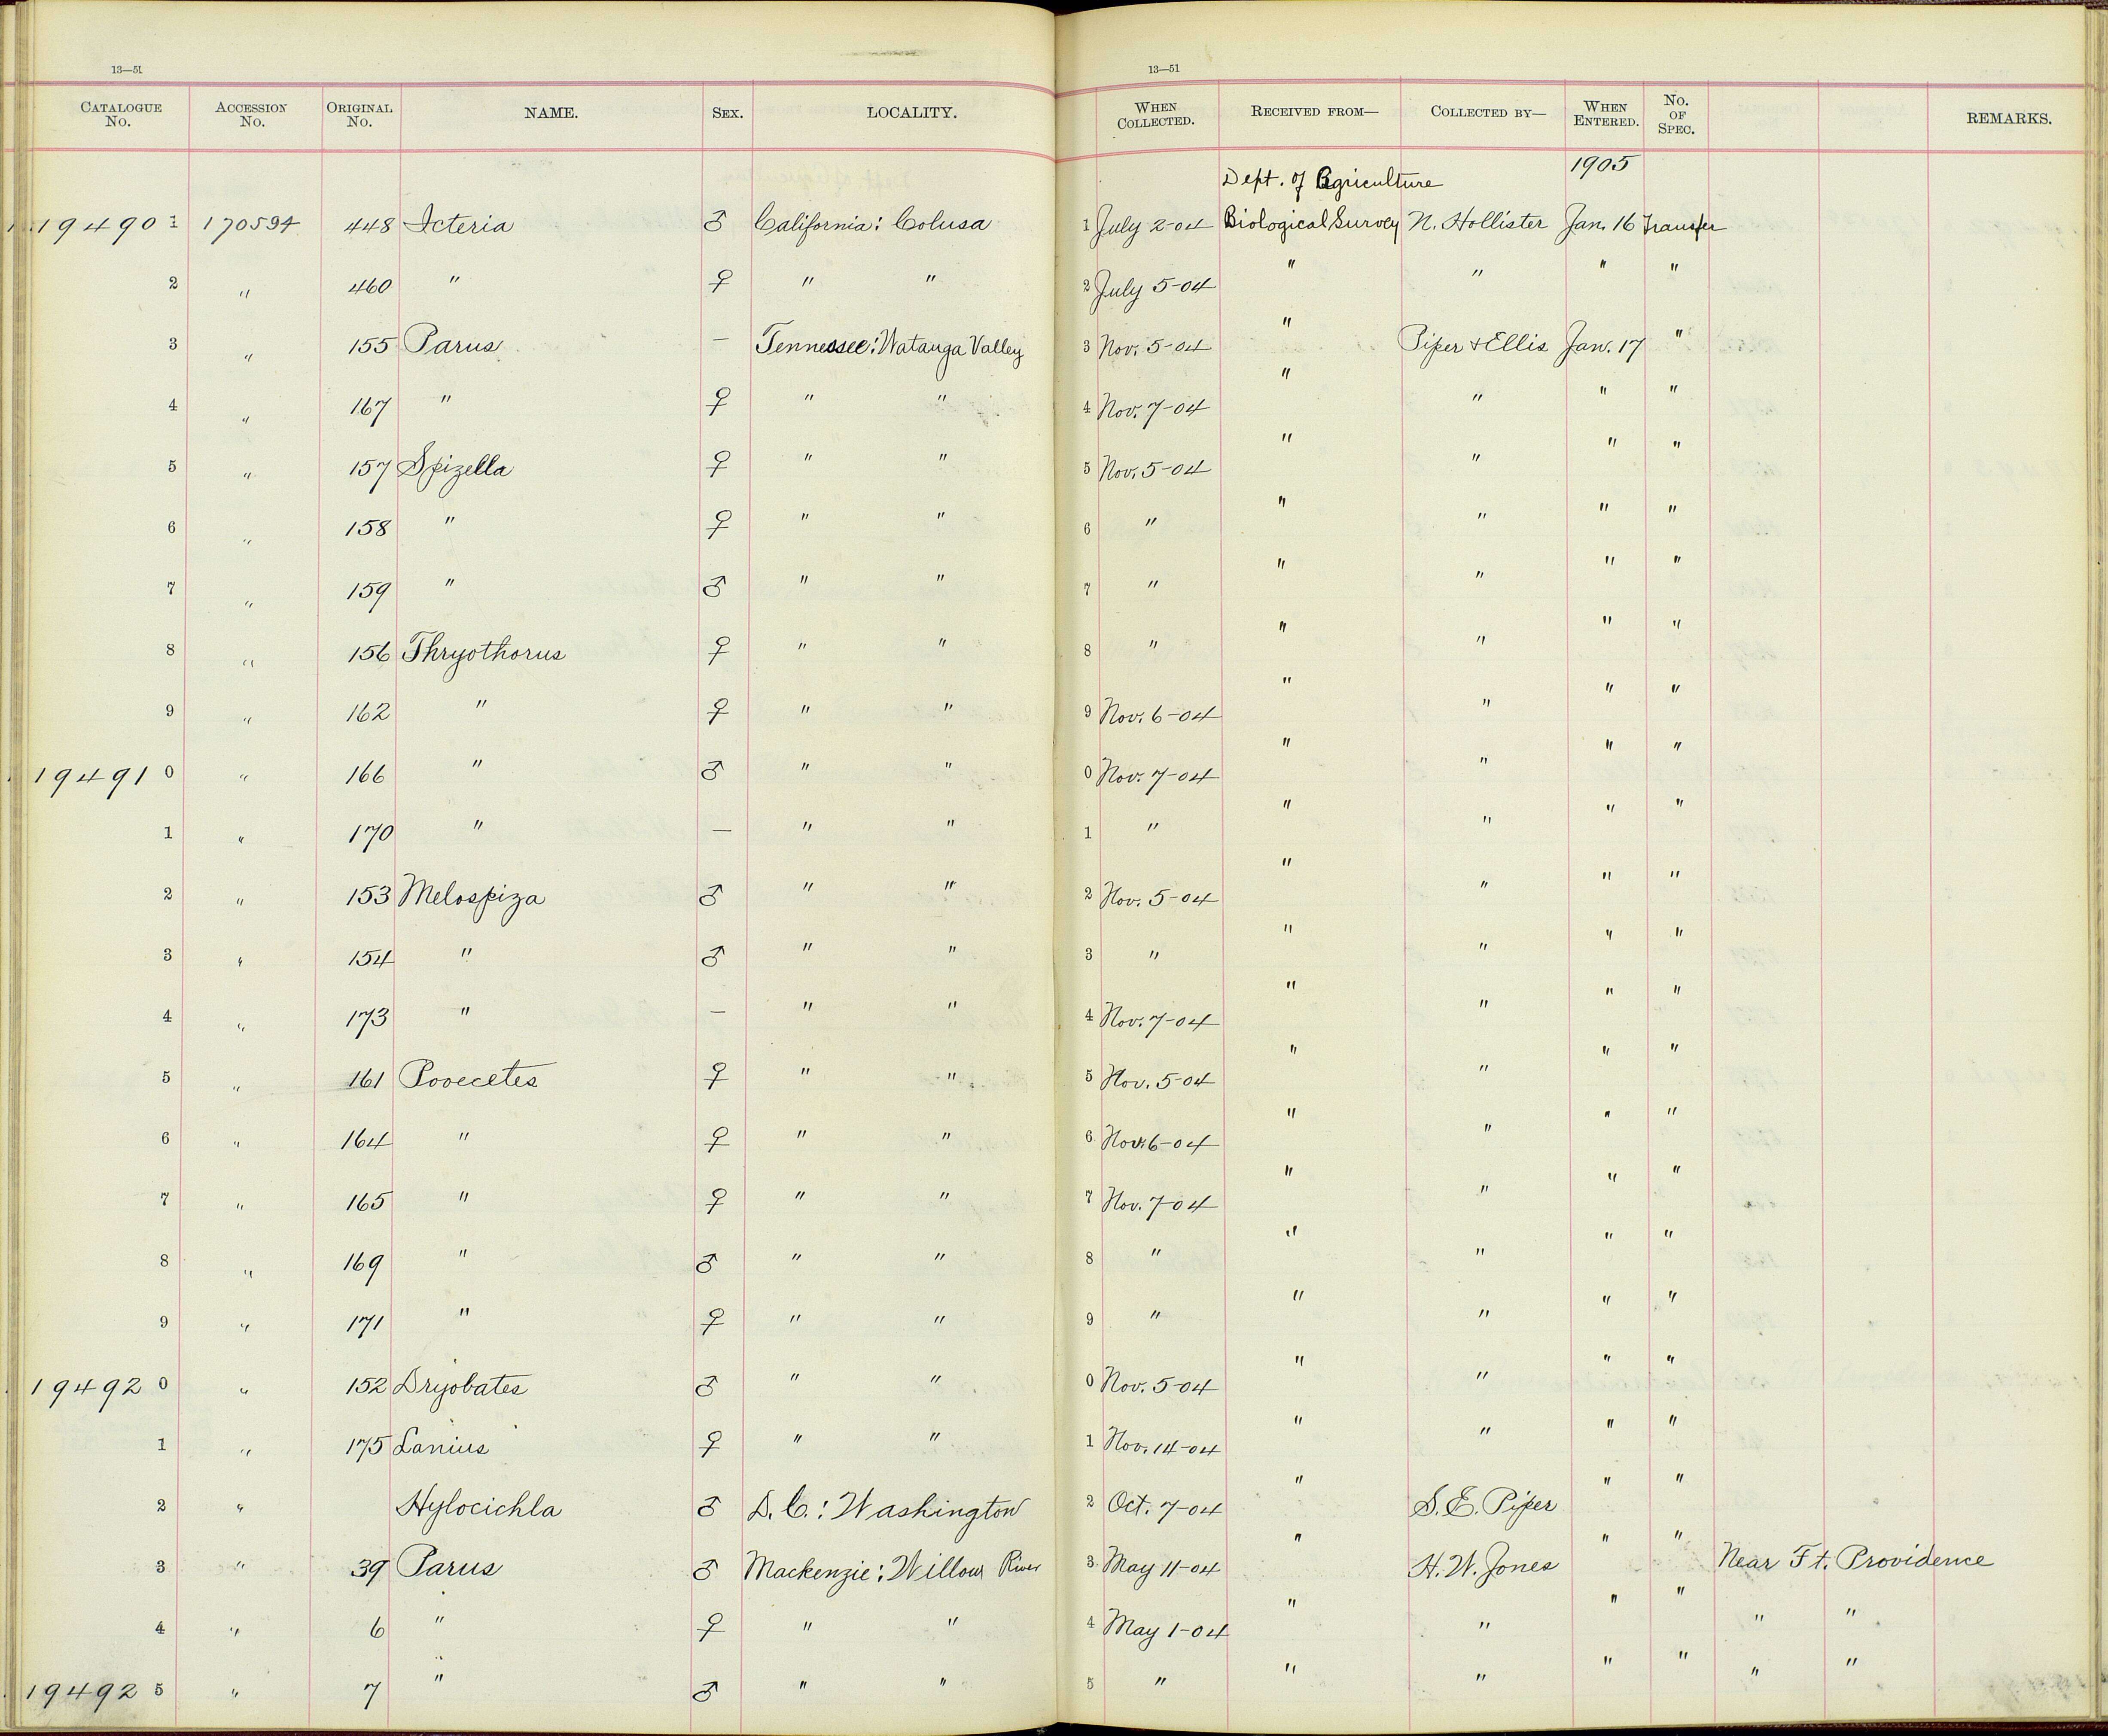 13—51 13—51
CATALOGUE No. ACCESSION No. ORIGINAL No. NAME. SEX. LOCALITY. WHEN COLLECTED. RECEIVED FROM— COLLECTED BY— WHEN ENTERED. No. OF SPEC. REMARKS.
Dept. of Agriculture 1905
19490 1 170594 448 Icteria ♂ California: Colusa 1 July 2-04 Biological Survey N. Hollister Jan. 16 Transfer
2 " 460 " ♀ " " 2 July 5-04 " " " "
3 " 155 Parus — Tennessee: Watauga Valley 3 Nov. 5-04 " Piper & Ellis Jan. 17 "
4 " 167 " ♀ " " 4 Nov. 7-04 " " " "
5 " 157 Spizella ♀ " " 5 Nov. 5-04 " " " "
6 " 158 " ♀ " " 6 " " " " "
7 " 159 " ♂ " " 7 " " " " "
8 " 156 Thryothorus ♀ " " 8 " " " " "
9 " 162 " ♀ " " 9 Nov. 6-04 " " " "
19491 0 " 166 " ♂ " " 0 Nov. 7-04 " " " "
1 " 170 " — " " 1 " " " " "
2 " 153 Melospiza ♂ " " 2 Nov. 5-04 " " " "
3 " 154 " ♂ " " 3 " " " " "
4 " 173 " — " " 4 Nov. 7-04 " " " "
5 " 161 Pooecetes ♀ " " 5 Nov. 5-04 " " " "
6 " 164 " ♀ " " 6 Nov. 6-04 " " " "
7 " 165 " ♀ " " 7 Nov. 7-04 " " " "
8 " 169 " ♂ " " 8 " " " " "
9 " 171 " ♀ " " 9 " " " " "
19492 0 " 152 Dryobates ♂ " " 0 Nov. 5-04 " " " "
1 " 175 Lanius ♀ " " 1 Nov. 14-04 " " " "
2 " Hylocichla ♂ D. C.: Washington 2 Oct. 7-04 " S. E. Piper " "
3 " 39 Parus ♂ Mackenzie: Willow River 3 May 11-04 " H. W. Jones " " Near Ft. Providence
4 " 6 " ♀ " " 4 May 1-04 " " " " " "
19492 5 " 7 " ♂ " " 5 " " " " " " "